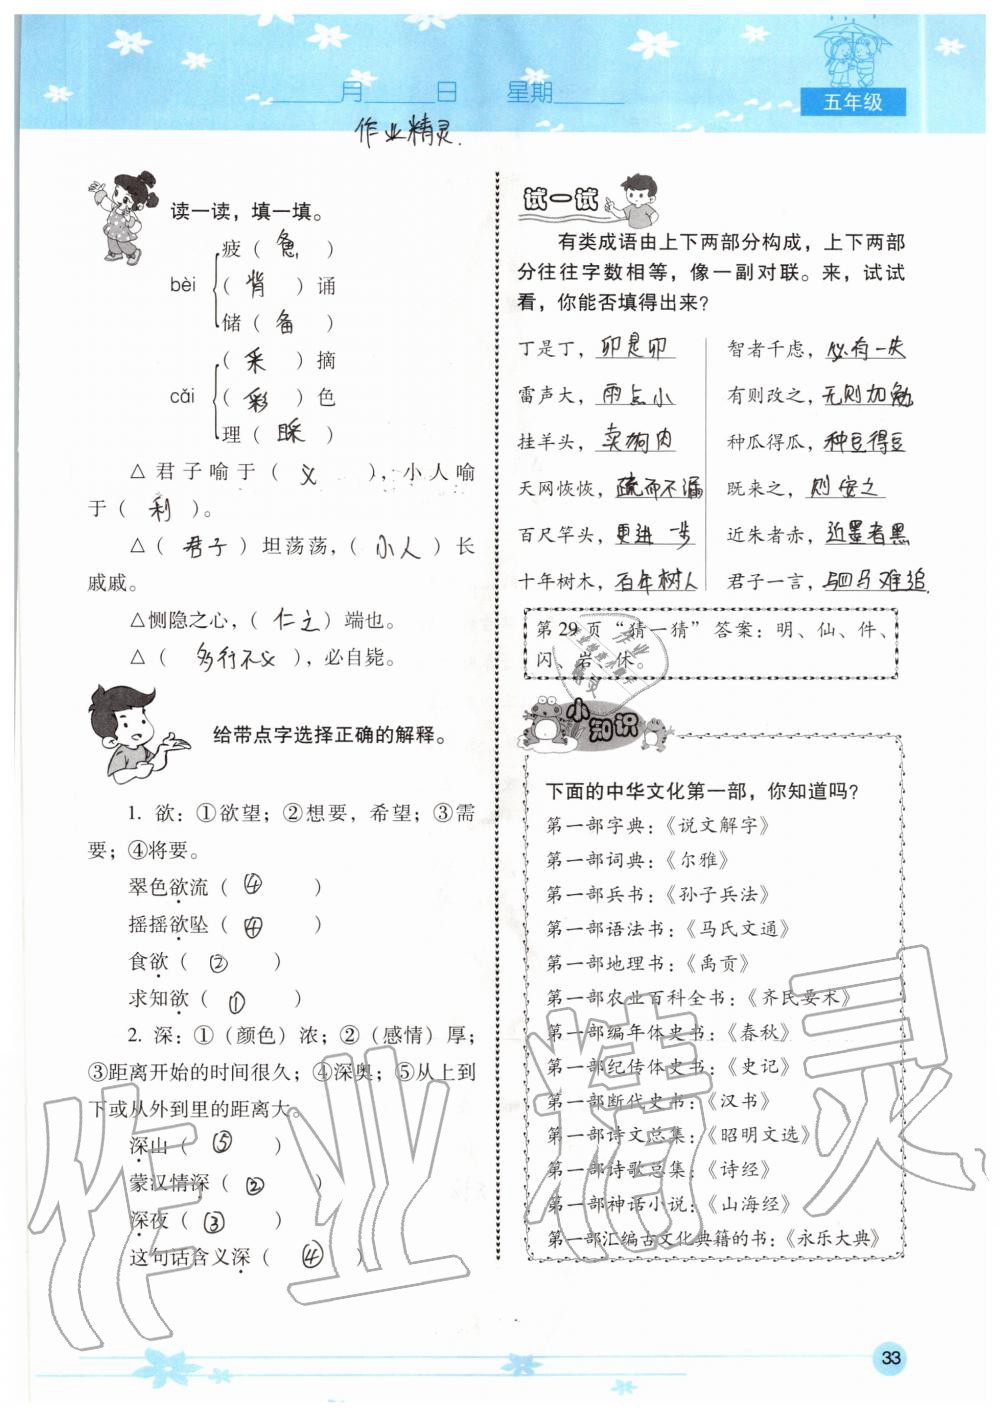 月 日 星期
五年级
作业精灵.
读一读，填一填。
疲（ 惫 ）
bèi （ 背 ）诵
储（ 备 ）
（ 采 ）摘
cǎi （ 彩 ）色
理（ 睬 ）
△君子喻于（ 义 ），小人喻
于（ 利 ）。
△（ 君子 ）坦荡荡，（ 小人 ）长
戚戚。
△恻隐之心，（ 仁之 ）端也。
△（ 多行不义 ），必自毙。
给带点字选择正确的解释。
1. 欲：①欲望；②想要，希望；③需
要；④将要。
翠色欲流（ ④ ）
摇摇欲坠（ ④ ）
食欲（ ② ）
求知欲（ ① ）
2. 深：①（颜色）浓；②（感情）厚；
③距离开始的时间很久；④深奥；⑤从上到
下或从外到里的距离大。
深山（ ⑤ ）
蒙汉情深（ ② ）
深夜（ ③ ）
这句话含义深（ ④ ）
试一试
有类成语由上下两部分构成，上下两部
分往往字数相等，像一副对联。来，试试
看，你能否填得出来？
丁是丁，卯是卯 智者千虑，必有一失
雷声大，雨点小 有则改之，无则加勉
挂羊头，卖狗肉 种瓜得瓜，种豆得豆
天网恢恢，疏而不漏 既来之，则安之
百尺竿头，更进一步 近朱者赤，近墨者黑
十年树木，百年树人 君子一言，驷马难追.
第29页“猜一猜”答案：明、仙、件、
闪、岩、休。
小知识
下面的中华文化第一部，你知道吗？
第一部字典：《说文解字》
第一部词典：《尔雅》
第一部兵书：《孙子兵法》
第一部语法书：《马氏文通》
第一部地理书：《禹贡》
第一部农业百科全书：《齐民要术》
第一部编年体史书：《春秋》
第一部纪传体史书：《史记》
第一部断代史书：《汉书》
第一部诗文总集：《昭明文选》
第一部诗歌总集：《诗经》
第一部神话小说：《山海经》
第一部汇编古文化典籍的书：《永乐大典》
作业精灵
33